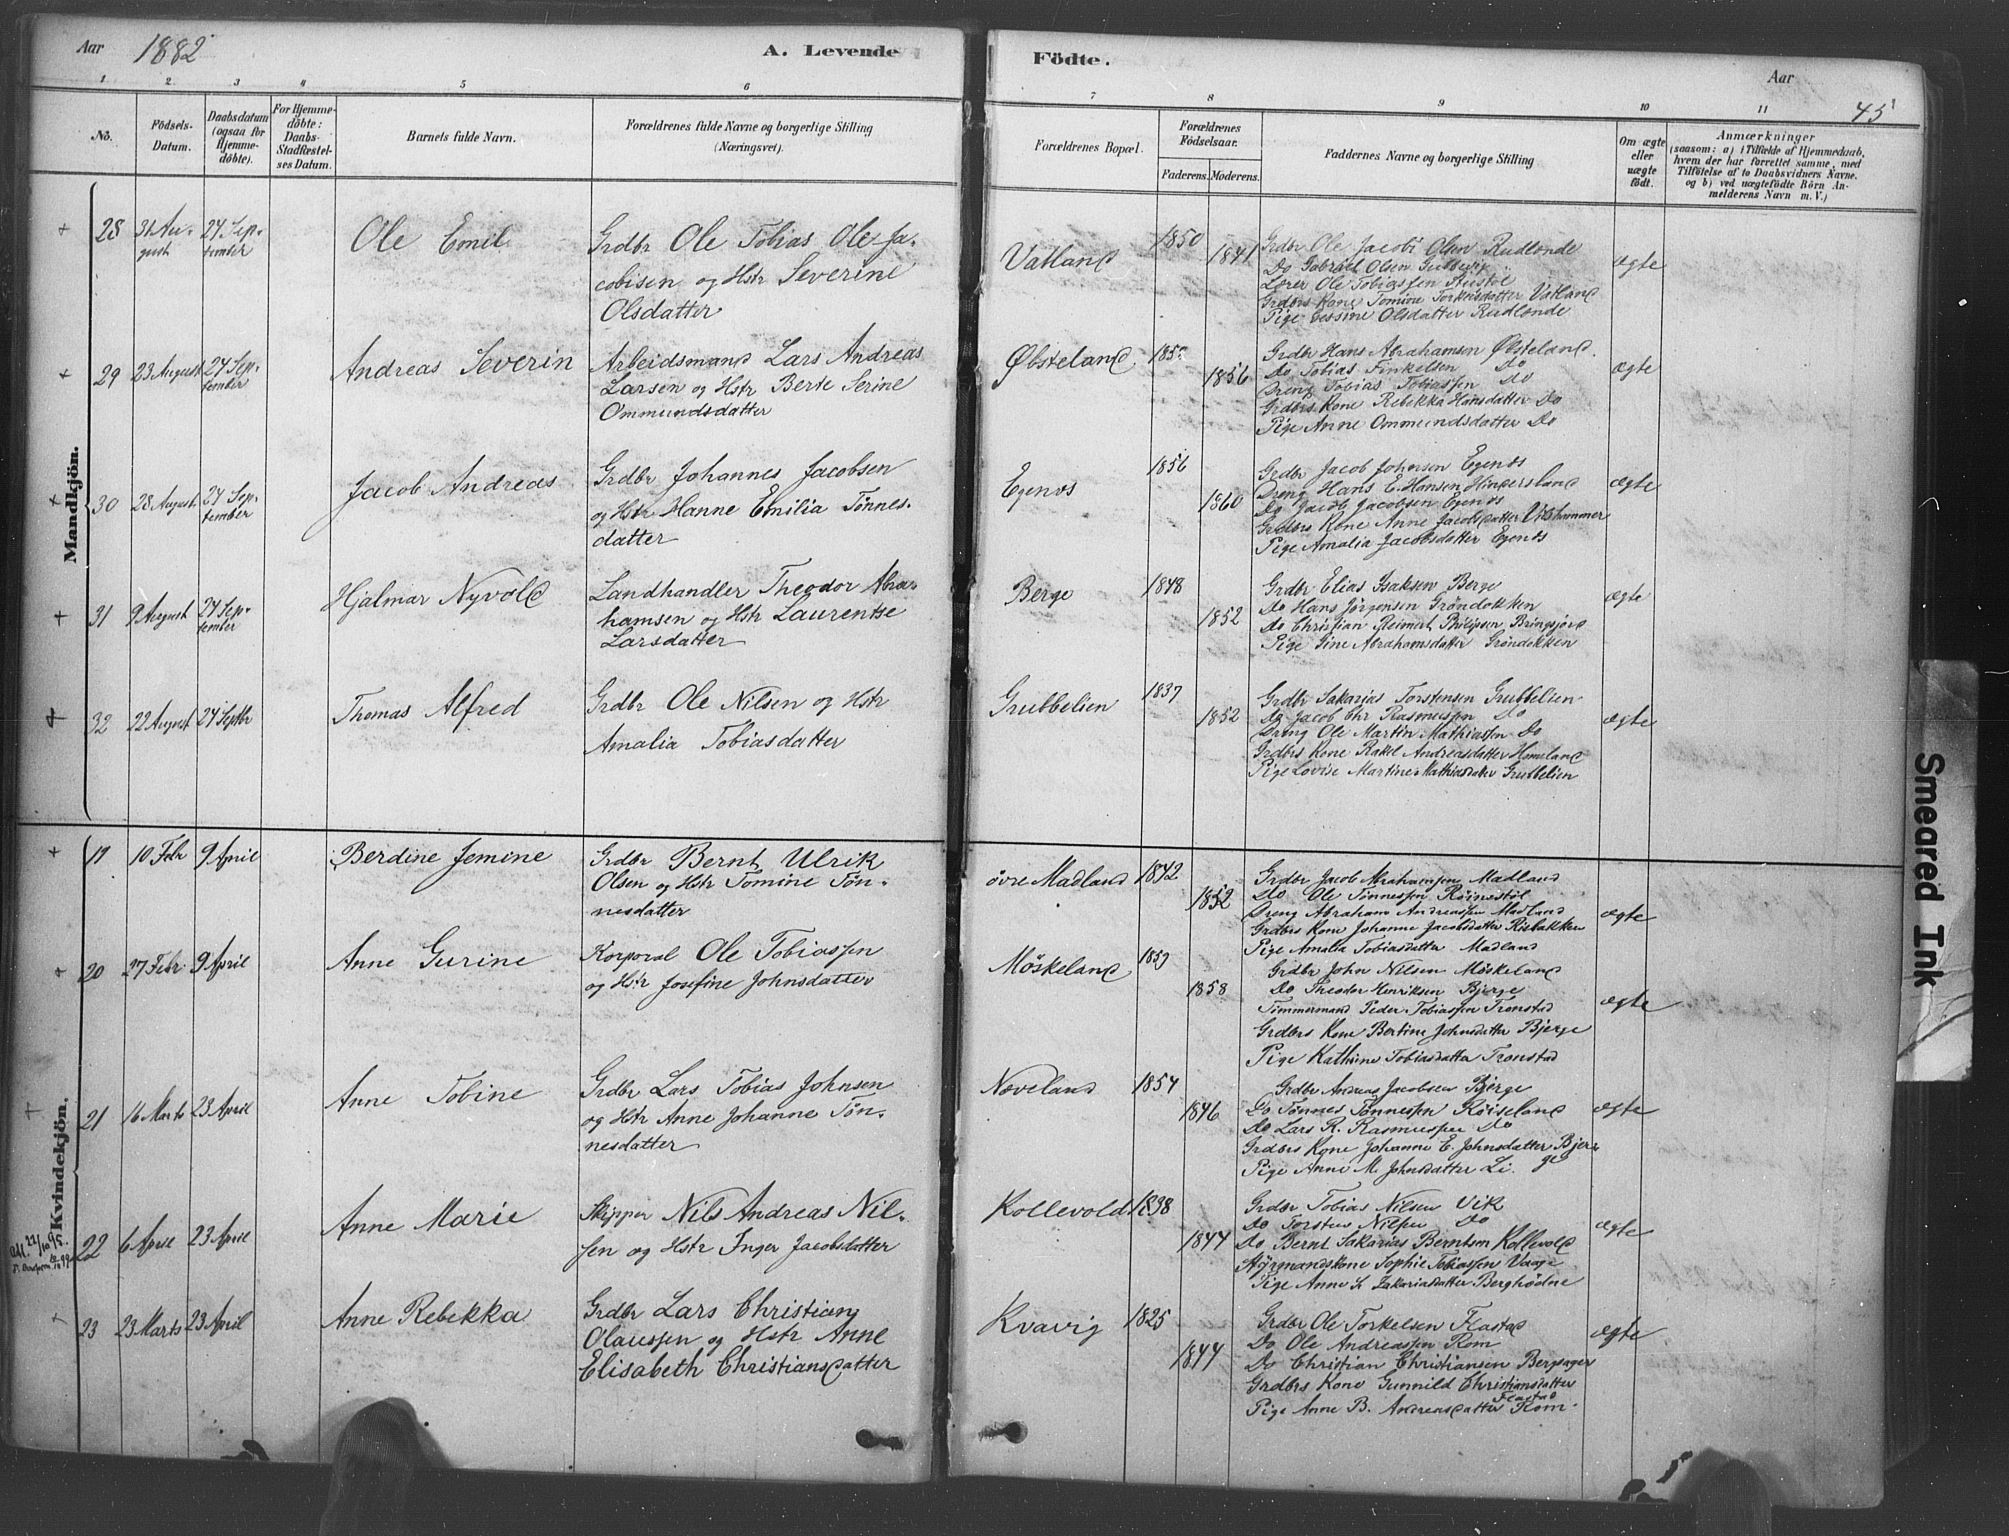 Aar 1882 A. Levende Födte. Aar 45
1 2 3 4 5 6 7 8 9 10 11
No. Födsels-Datum. Daabsdatum (ogsaa för Hjemmedöbte). For Hjemmedöbte: Daabs-Stadfæstelses Datum. Barnets fulde Navn. Forældrenes fulde Navne og borgerlige Stilling (Næringsvei). Forældrenes Bopæl. Forældrenes Födselsaar. Faderens. Moderens. Faddernes Navne og borgerlige Stilling Om ægte eller uægte födt. Anmærkninger (saasom: a) i Tilfælde af Hjemmedaab, hvem der har forrettet samme, med Tilföielse af to Daabsvidners Navne, og b) ved uægtefödte Börn Anmelderens Navn m. V.)
Mandkjön.
28 31 August 24 September Ole Emil Grdbr Ole Tobias Ole Jacobisen og Hstr Severine Olsdatter Vatland 1850 1841 ægte
Grdbr Ole Jacobi Olsen Rudlende
Do Gabriel Olsen
Lærer Ole Tobiassen
Grdbrs Kone Tomine Torkensdatter Vatland
Pige Gessine Olsdatter Rudlende
29 23 August 24 September Andreas Severin Arbeidsmand Lars Andreas Larsen og Hstr Berte Serine Ommundsdatter Øbsteland 1856 ægte
Grdbr Hans Abrahamsen Øbsteland.
Do Tobias Finkelsen Do
Dreng Tobias Tobiassen Do
Grdbrs Kone Rebekka Hansdatter Do
Pige Anne Ommundsdatter Do
30 28 August 24 September Jacob Andreas Grdbr Johannes Jacobsen og Hstr Hanne Emilia Tønnesdatter Egenes 1856 1860 ægte
Grdbr Jacob Johnsen Egenes
Dreng Hans E. Hansen Hindersland
Do Jacob Jacobsen Egenes
Grdbrs Kone Anne Jacobsdatter
Pige Amalia Jacobsdatter Egenes
31 9 August 24 September Hjalmar Nyvold Landhandler Theodor Abrahamsen og Hstr Laurentse Larsdatter Berge 1848 1852 ægte
Grdbr Elias Isaksen Berge
Do Hans Jørgensen Grøndokken
Do Christian Reinert Philipsen Bringsjord
Pige Gine Abrahamsdatter Grøndokken
32 22 August 24 Septbr Thomas Alfred Grdbr Ole Nilsen og Hstr Amalia Tobiasdatter Grubbelien 1837 1852 ægte
Grdbr Sakarias Torstensen Grubbelien
Do Jacob Chr Rasmussen Do
Dreng Ole Martin Mathiassen Do
Grdbrs Kone Rakel Andreasdatter Homeland
Pige Lovise Martine Mathiasdatter Grubbelien
Kvindekjön.
19 10 Febr 9 April Berdine Jemine Grdbr Bernt Ulrik Olsen og Hstr Tomine Tønnesdatter øvre Madland 1842 1852 ægte
Grdbr Jacob Abrahamsen Madland
Do Ole Tønnessen Røinestøl
Dreng Abraham Andreassen Madland
Grdbrs Kone Johanne Jacobsdatter Risbakken
Pige Amalia Tobiasdatter Madland
20 27 Febr 9 April Anne Gurine Korporal Ole Tobiassen og Hstr Josefine Johnsdatter Møskeland 1859 1858 ægte
Grdbr John Nilsen Møskeland
Do Theodor Henriksen Bjerge
Tømmermand Peder Tobiassen Tronstad
Grdbrs Kone Bertine Johnsdatter Bjerge
Pige Kathrine Tobiasdatter Tronstad
21 16 Marts 23 April Anne Tobine Grdbr Lars Tobias Johnsen og Hstr Anne Johanne Tønnesdatter Næveland 1854 1846 ægte
Grdbr Andreas Jacobsen Bjerge
Do Tønnes Tønnessen Røiseland
Do Lars R. Rasmussen Do
Grdbrs Kone Johanne E. Johnsdatter Bjerge
Pige Anne M. Johnsdatter Li.
22 6 April 23 April Anne Marie Skipper Nils Andreas Nilsen og Hstr Inger Jacobsdatter Kollevold 1838 1847 ægte
Grdbr Tobias Nilsen Vik
Do Torsten Nilsen Do
Do Bernt Sakarias Berntsen Kollevold
Styrmandskone Sophie Tobiassen Vaage
Pige Anne S. Zakariasdatter Berghødne
23 23 Marts 23 April Anne Rebekka Grdbr Lars Christian Olaussen og Hstr Anne Elisabeth Christiansdatter Kvavig 1825 1844 ægte
Grdbr Ole Torkelsen Flastad
Do Ole Andreassen Rom
Do Christian Christiansen Bergsager
Grdbrs Kone Gunnild Christiansdatter Flastad
Pige Anne B. Andreasdatter Rom.
Smeared Ink